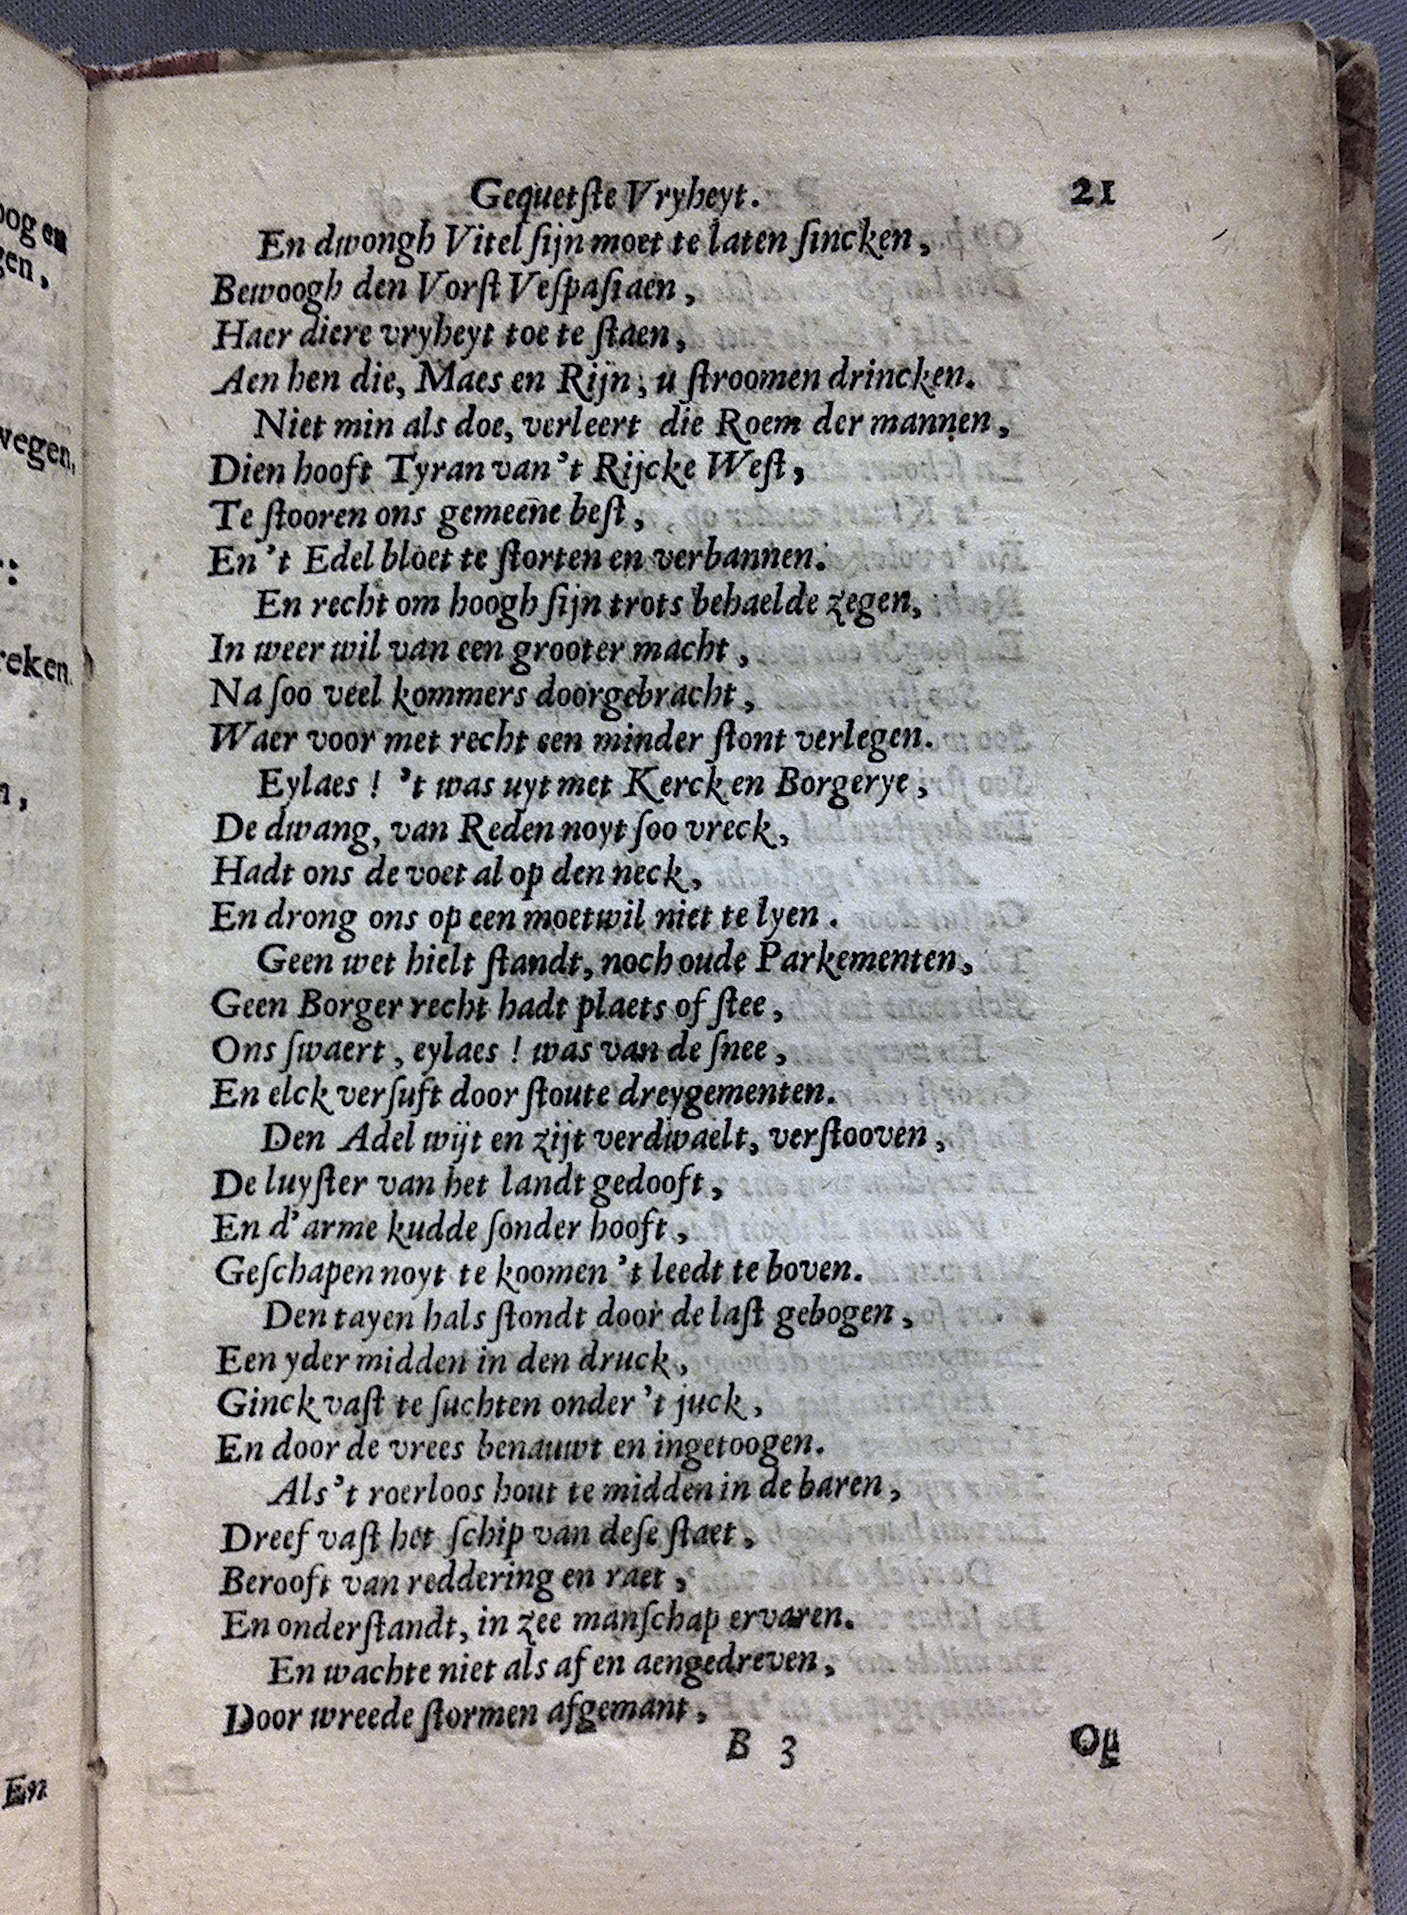 Gequetſte Vryheyt. 21
En dwongh Vitel ſijn moet te laten ſincken,
Bewoogh den Vorſt Veſpaſiaen,
Haer diere vryheyt toe te ſtaen,
Aen hen die, Maes en Rijn, u ſtroomen drincken.
Niet min als doe, verleert die Roem der mannen,
Dien hooft Tyran van 't Rijcke Weſt,
Te ſtooren ons gemeene beſt,
En 't Edel bloet te ſtorten en verbannen.
En recht om hoogh ſijn trots behaelde zegen,
In weer wil van een grooter macht,
Na ſoo veel kommers doorgebracht,
Waer voor met recht een minder ſtont verlegen.
Eylaes ! 't was uyt met Kerck en Borgerye,
De dwang, van Reden noyt ſoo vreck,
Hadt ons de voet al op den neck,
En drong ons op een moetwil niet te lyen.
Geen wet hielt ſtandt, noch oude Parkementen,
Geen Borger recht hadt plaets of ſtee,
Ons ſwaert, eylaes ! was van de ſnee,
En elck verſuft door ſtoute dreygementen.
Den Adel wijt en zijt verdwaelt, verſtooven,
De luyſter van het landt gedooft,
En d'arme kudde ſonder hooft,
Geſchapen noyt te koomen 't leedt te boven.
Den tayen hals ſtondt door de laſt gebogen,
Een yder midden in den druck,
Ginck vaſt te ſuchten onder 't juck,
En door de vrees benauwt en ingetoogen.
Als 't roerloos hout te midden in de baren,
Dreef vaſt het ſchip van deſe ſtaet,
Berooft van reddering en raet,
En onderſtandt, in zee manſchap ervaren.
En wachte niet als af en aengedreven,
Door wreede ſtormen afgemant,
B 3 Op
oog en
gen,
wegen,
reken.
n,
En